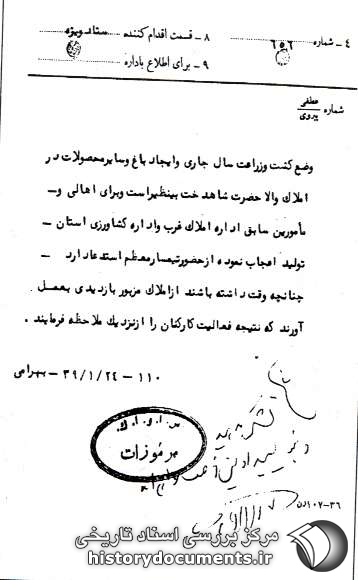 ۴ – شماره ۶۵۶
۸ – قسمت اقدام کننده ستاد ویژه
۹ – برای اطلاع باداره
شماره عطفی
پیروی
وضع کشت وزراعت سال جاری وایجاد باغ وسایر محصولات در
املاک والا حضرت شاهدخت بینظیر است وبرای اهالی و –
مأمورین سابق اداره املاک غرب واداره کشاورزی استان –
تولید اعجاب نموده از حضور تیمسار معظم استدعا دارد –
چنانچه وقت داشته باشند از املاک مزبور بازدیدی بعمل
آورند که نتیجه فعالیت کارکنان را از نزدیک ملاحظه فرمایند .
۱۱۰ – ۳۹/۱/۲۴ – بهرامی
س . ا . و . ا . ک .
مرموزات
۳۶–۱۰۷
مرکز بررسی اسناد تاریخی
historydocuments.ir